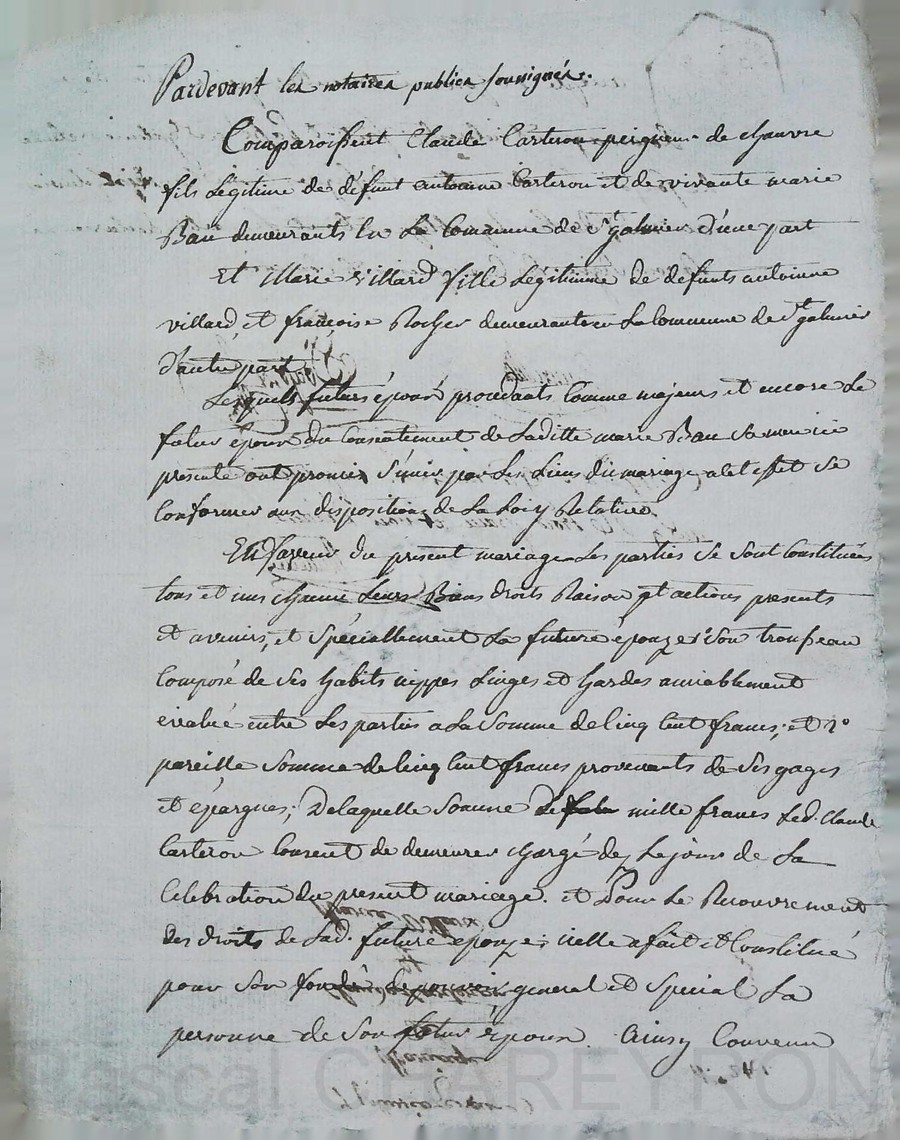 Pardevant les notaires publics soussignés.
Comparoissent Claude Carteron peigneur de chanvre
fils Légitime de défunt antoinne Carteron et de vivante marie
Bau demeurants En La Commune de St galmier d'une part
Et Marie Villard fille Légitimme de defunts antoinne
villard, et françoise Rocher demeurante en La Commune de St galmier
d'autre part
Lesquels futurs époux procédants Comme majeurs et encore Le
futur époux du Consentement de Laditte marie Bau Sa mere ici
présente ont promis S'unir par Les Liens du mariage a cet effet Se
Conformer aux dispositions de La Loix Relative.
En faveur du présent mariage Les parties Se Sont Constituées
tous et uns chacuns Leurs Biens droits Raisons et actions présents
et avenirs, et Spéciallement La future épouze 1° Son trousseau
Composé de Ses habits nippes Linges et hardes amiablement
évalué entre Les parties a La Somme de Cinq Cent francs; et 2°
pareille Somme de Cinq Cent francs provenants de Ses gages
et épargnes; De laquelle Somme de mille francs Led. Claude
Carteron Consent de demeurer chargé dez Le jour de La
Célébration du présent mariage. et Pour Le Recouvrement
des droits de Lad. future épouze; icelle a fait et Constitué
pour Son fondé de pouvoir general et Special La
personne de Son futur époux. Ainsy Convenu
Pascal CHAREYRON